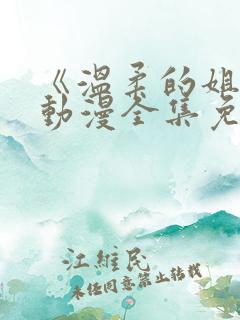 《温柔的姐
动漫全集免
江维民
未经同意禁止转载